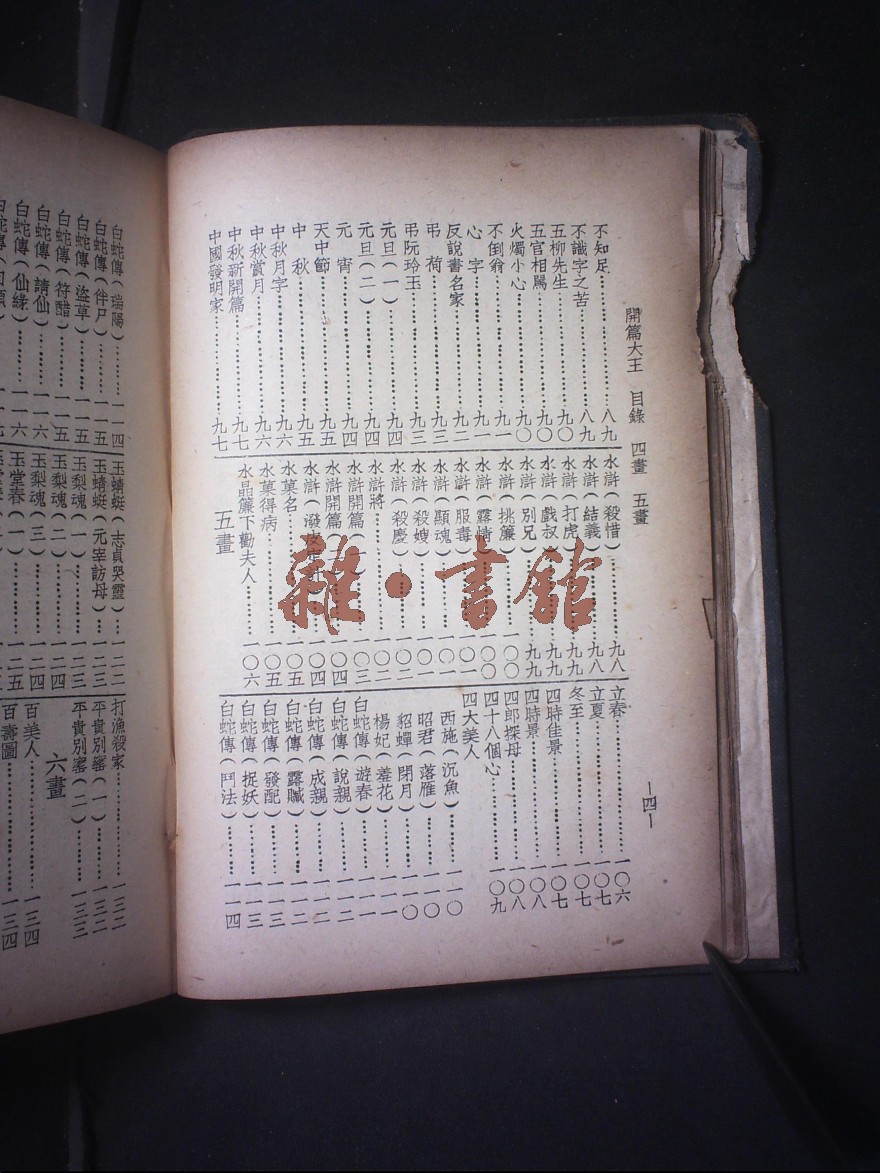 開篇大王 目錄 四畫 五畫
—四—
不知足………八九
不識字之苦………八九
五柳先生………九〇
五官相罵………九〇
火燭小心………九〇
不倒翁………九一
心字………九一
反說書名家………九二
弔荷………九三
弔阮玲玉………九三
元旦(一)………九四
元旦(二)………九四
元宵………九四
天中節………九五
中秋………九五
中秋月字………九六
中秋賞月………九六
中秋新開篇………九七
中國發明家………九七
水滸(殺惜)………九八
水滸(結義)………九八
水滸(打虎)………九九
水滸(戲叔)………九九
水滸(別兄)………九九
水滸(挑簾)………一〇〇
水滸(露情)………一〇〇
水滸(服毒)………一〇一
水滸(顯魂)………一〇一
水滸(殺嫂)………一〇一
水滸(殺慶)………一〇二
水滸將………一〇三
水滸開篇(一)………一〇四
水滸開篇(二)………一〇四
水滸(潑皮定計)………一〇四
水菓名………一〇五
水菓得病………一〇五
水晶簾下勸夫人………一〇六
五畫
立春………一〇六
立夏………一〇七
冬至………一〇七
四時佳景………一〇七
四時景………一〇八
四郎探母………一〇八
四十八個心………一〇九
四大美人
西施(沉魚)………一一〇
昭君(落雁)………一一〇
貂蟬(閉月)………一一〇
楊妃(羞花)………一一一
白蛇傳(遊春)………一一一
白蛇傳(說親)………一一二
白蛇傳(成親)………一一二
白蛇傳(露贓)………一一二
白蛇傳(發配)………一一三
白蛇傳(捉妖)………一一三
白蛇傳(鬥法)………一一四
白蛇傳(瑞陽)………一一四
白蛇傳(伴尸)………一一五
白蛇傳(盜草)………一一五
白蛇傳(符醋)………一一五
白蛇傳(請仙)………一一六
白蛇傳(仙緣)………一一六
玉蜻蜓(志貞哭靈)…一二二
玉蜻蜓(元宰訪母)…一二三
玉梨魂(一)………一二三
玉梨魂(二)………一二四
玉梨魂(三)………一二四
玉堂春(一)………一二五
打漁殺家………一三二
平貴別窰(一)………一三二
平貴別窰(二)………一三三
六畫
百美人………一三四
百壽圖………一三四
雜·書舘